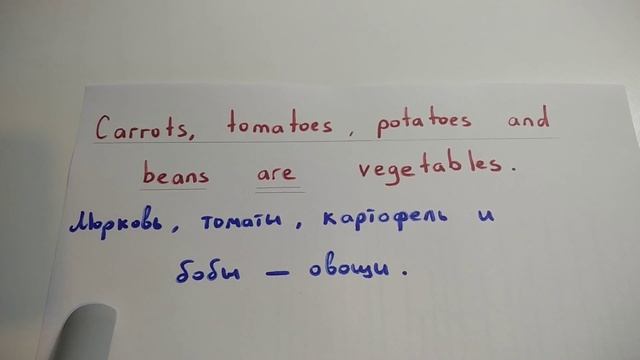 Carrots, tomatoes, potatoes and
beans are vegetables.
Морковь, томаты, картофель и
бобы — овощи.